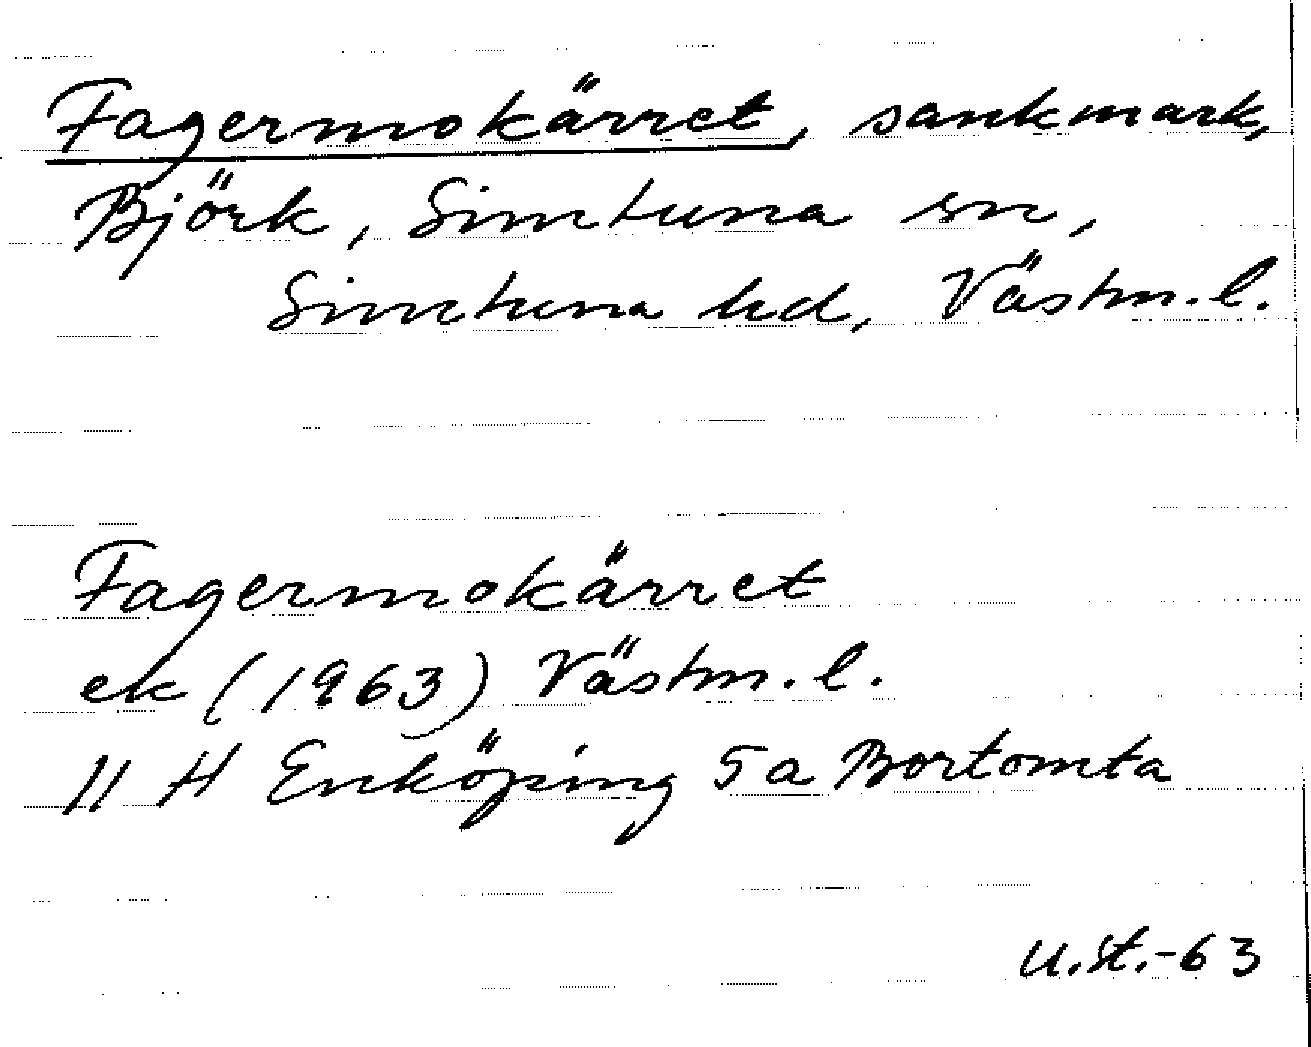 Fagermokärret, sankmark,
Björk, Simtuna sn,
Simtuna hd, Västm. l.
Fagermokärret
ek (1963) Västm. l.
11 H Enköping 5a Bortomta
U.St.-63